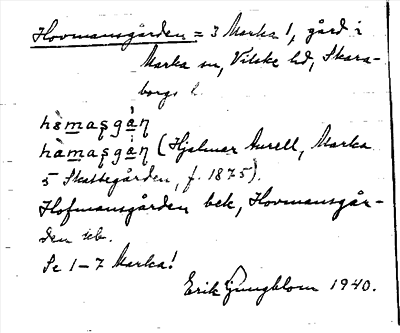 Hovmansgården = 3 Marka 1, gård i
Marka sn, Vilske hd, Skara-
borgs l.
hòmaşgàɳ
hàmaşgàɳ (Hjalmar Aurell, Marka
5 Skattegården, f. 1875).
Hofmansgården bek, Hovmansgår-
den jrb.
Se 1-7 Marka!
Erik Ljungblom 1940.